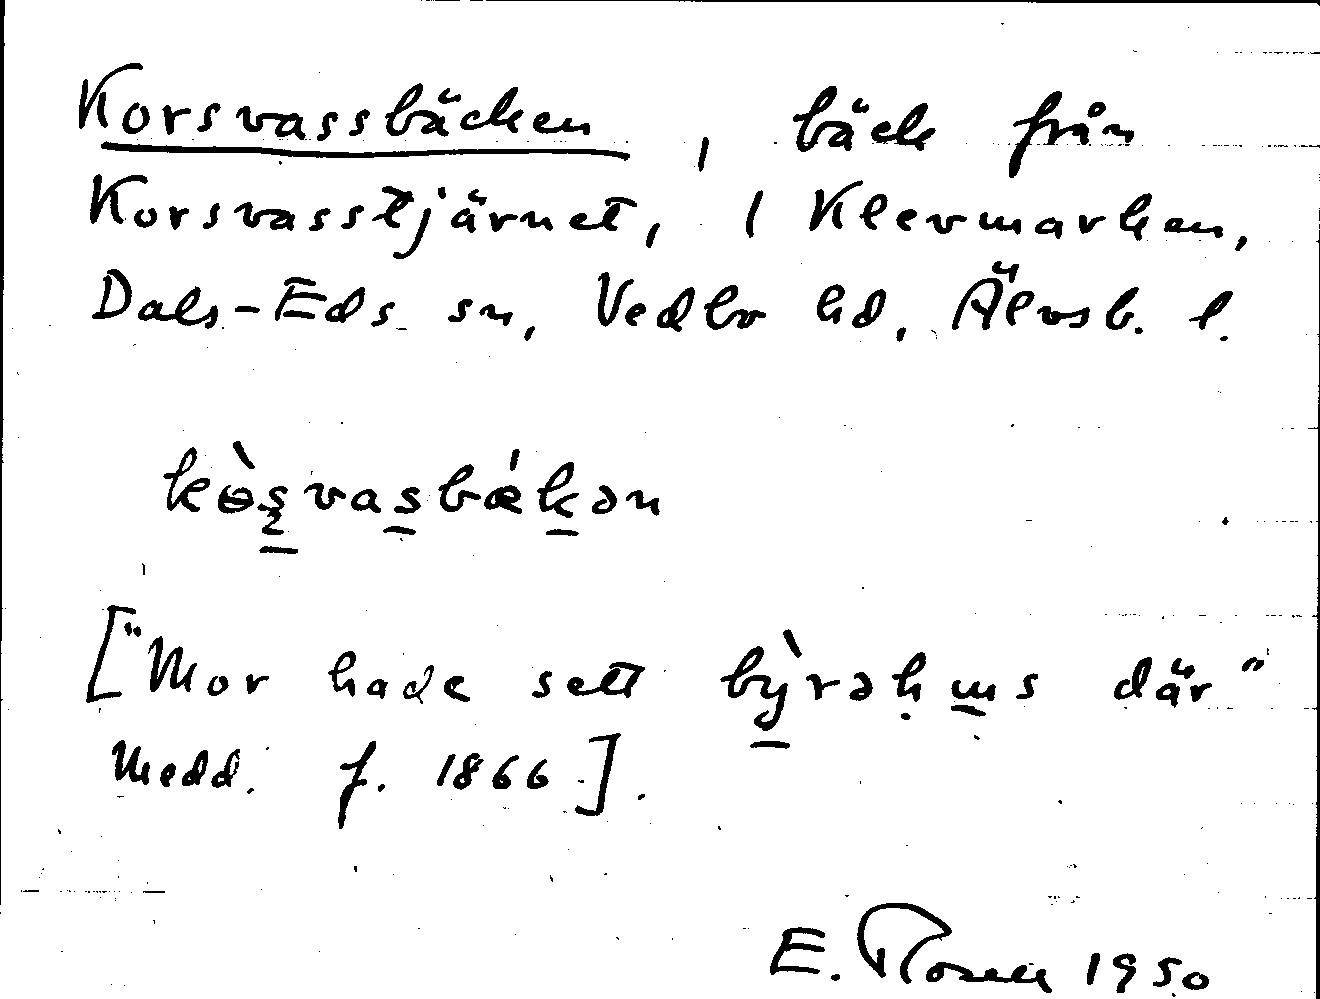 Korsvassbäcken, bäck från
Korsvasstjärnet, i Klevmarken,
Dals-Eds sn, Vedbo hd, Älvsb. l.
kɵ̀ʂvas̱bǽḵən
["Mor hade sett bỳrəḥm̱s där"
Medd. f. 1866].
E. Rosell 1950